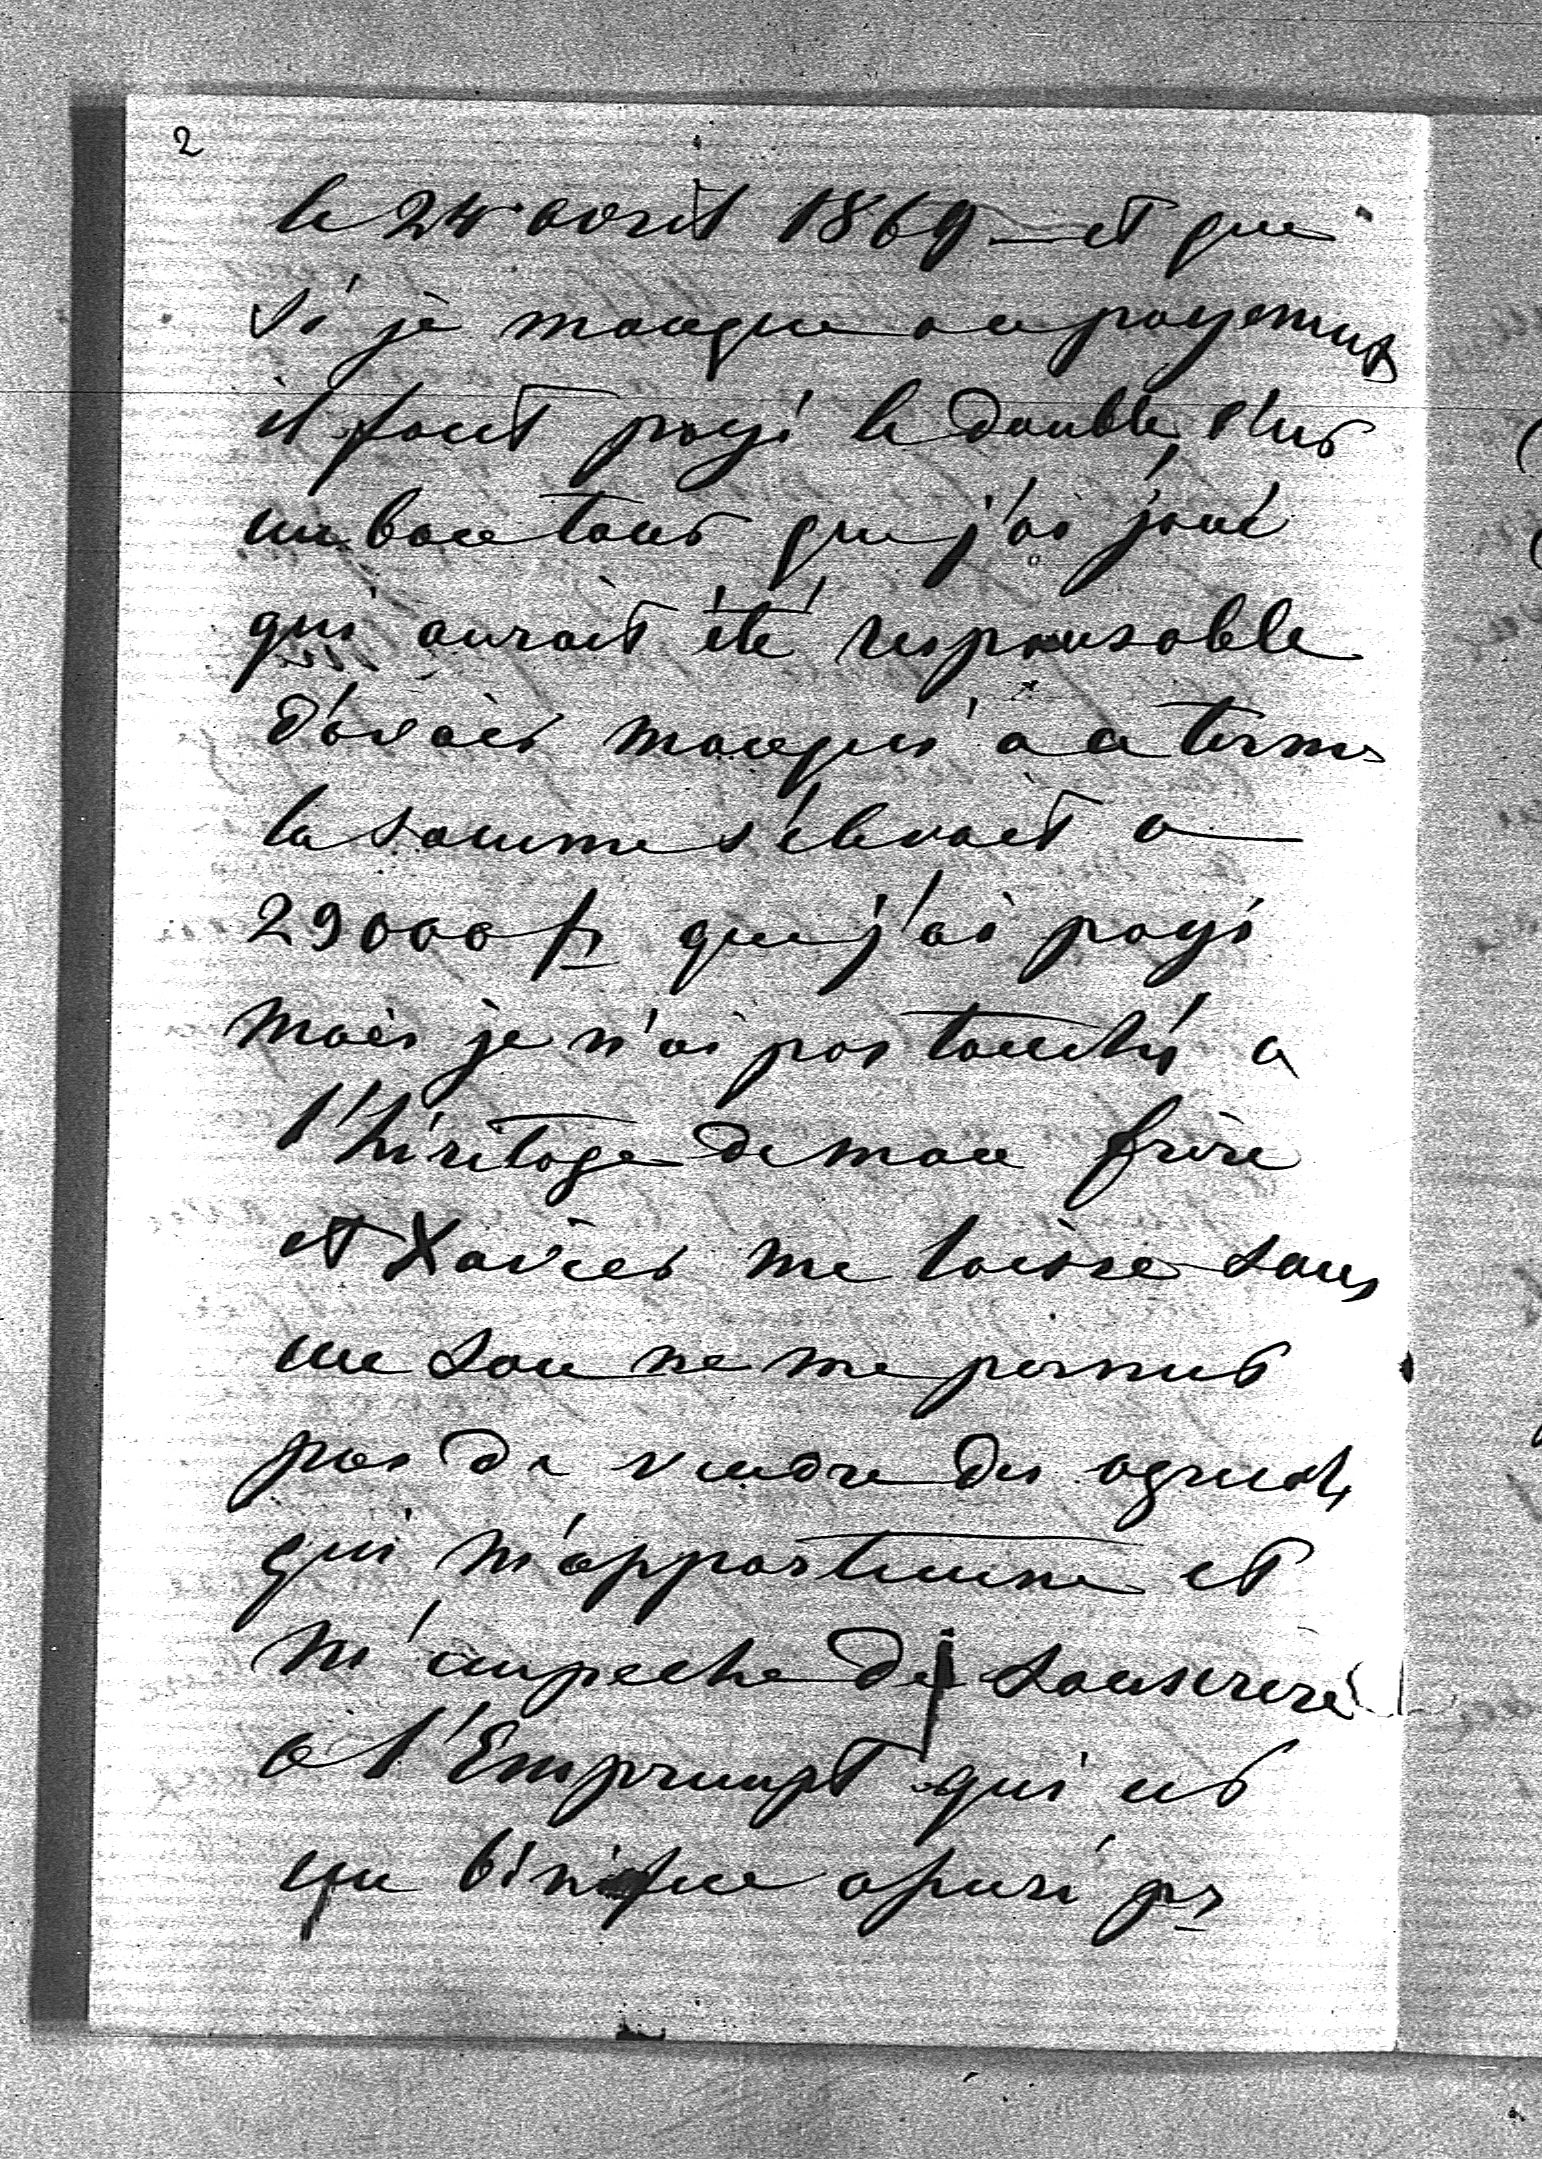 2
le 24 avril 1869 – et que
si je manque au payement
il faut payé le double c'est
un bon tour que j'ai joué
qui aurait été responsable
d'avoir manqué a ce terme
la somme s'élevait a
29000 fr que j'ai payé
mais je n'ai pas touché a
l'héritage de mon frère
et Xavier me laisse sans
un sou ne me permet
pas de vendre des
qui m'appartienne et
m'enpeche de souscrire
a l'Emprunpt qui est
un bénifice assuré pr